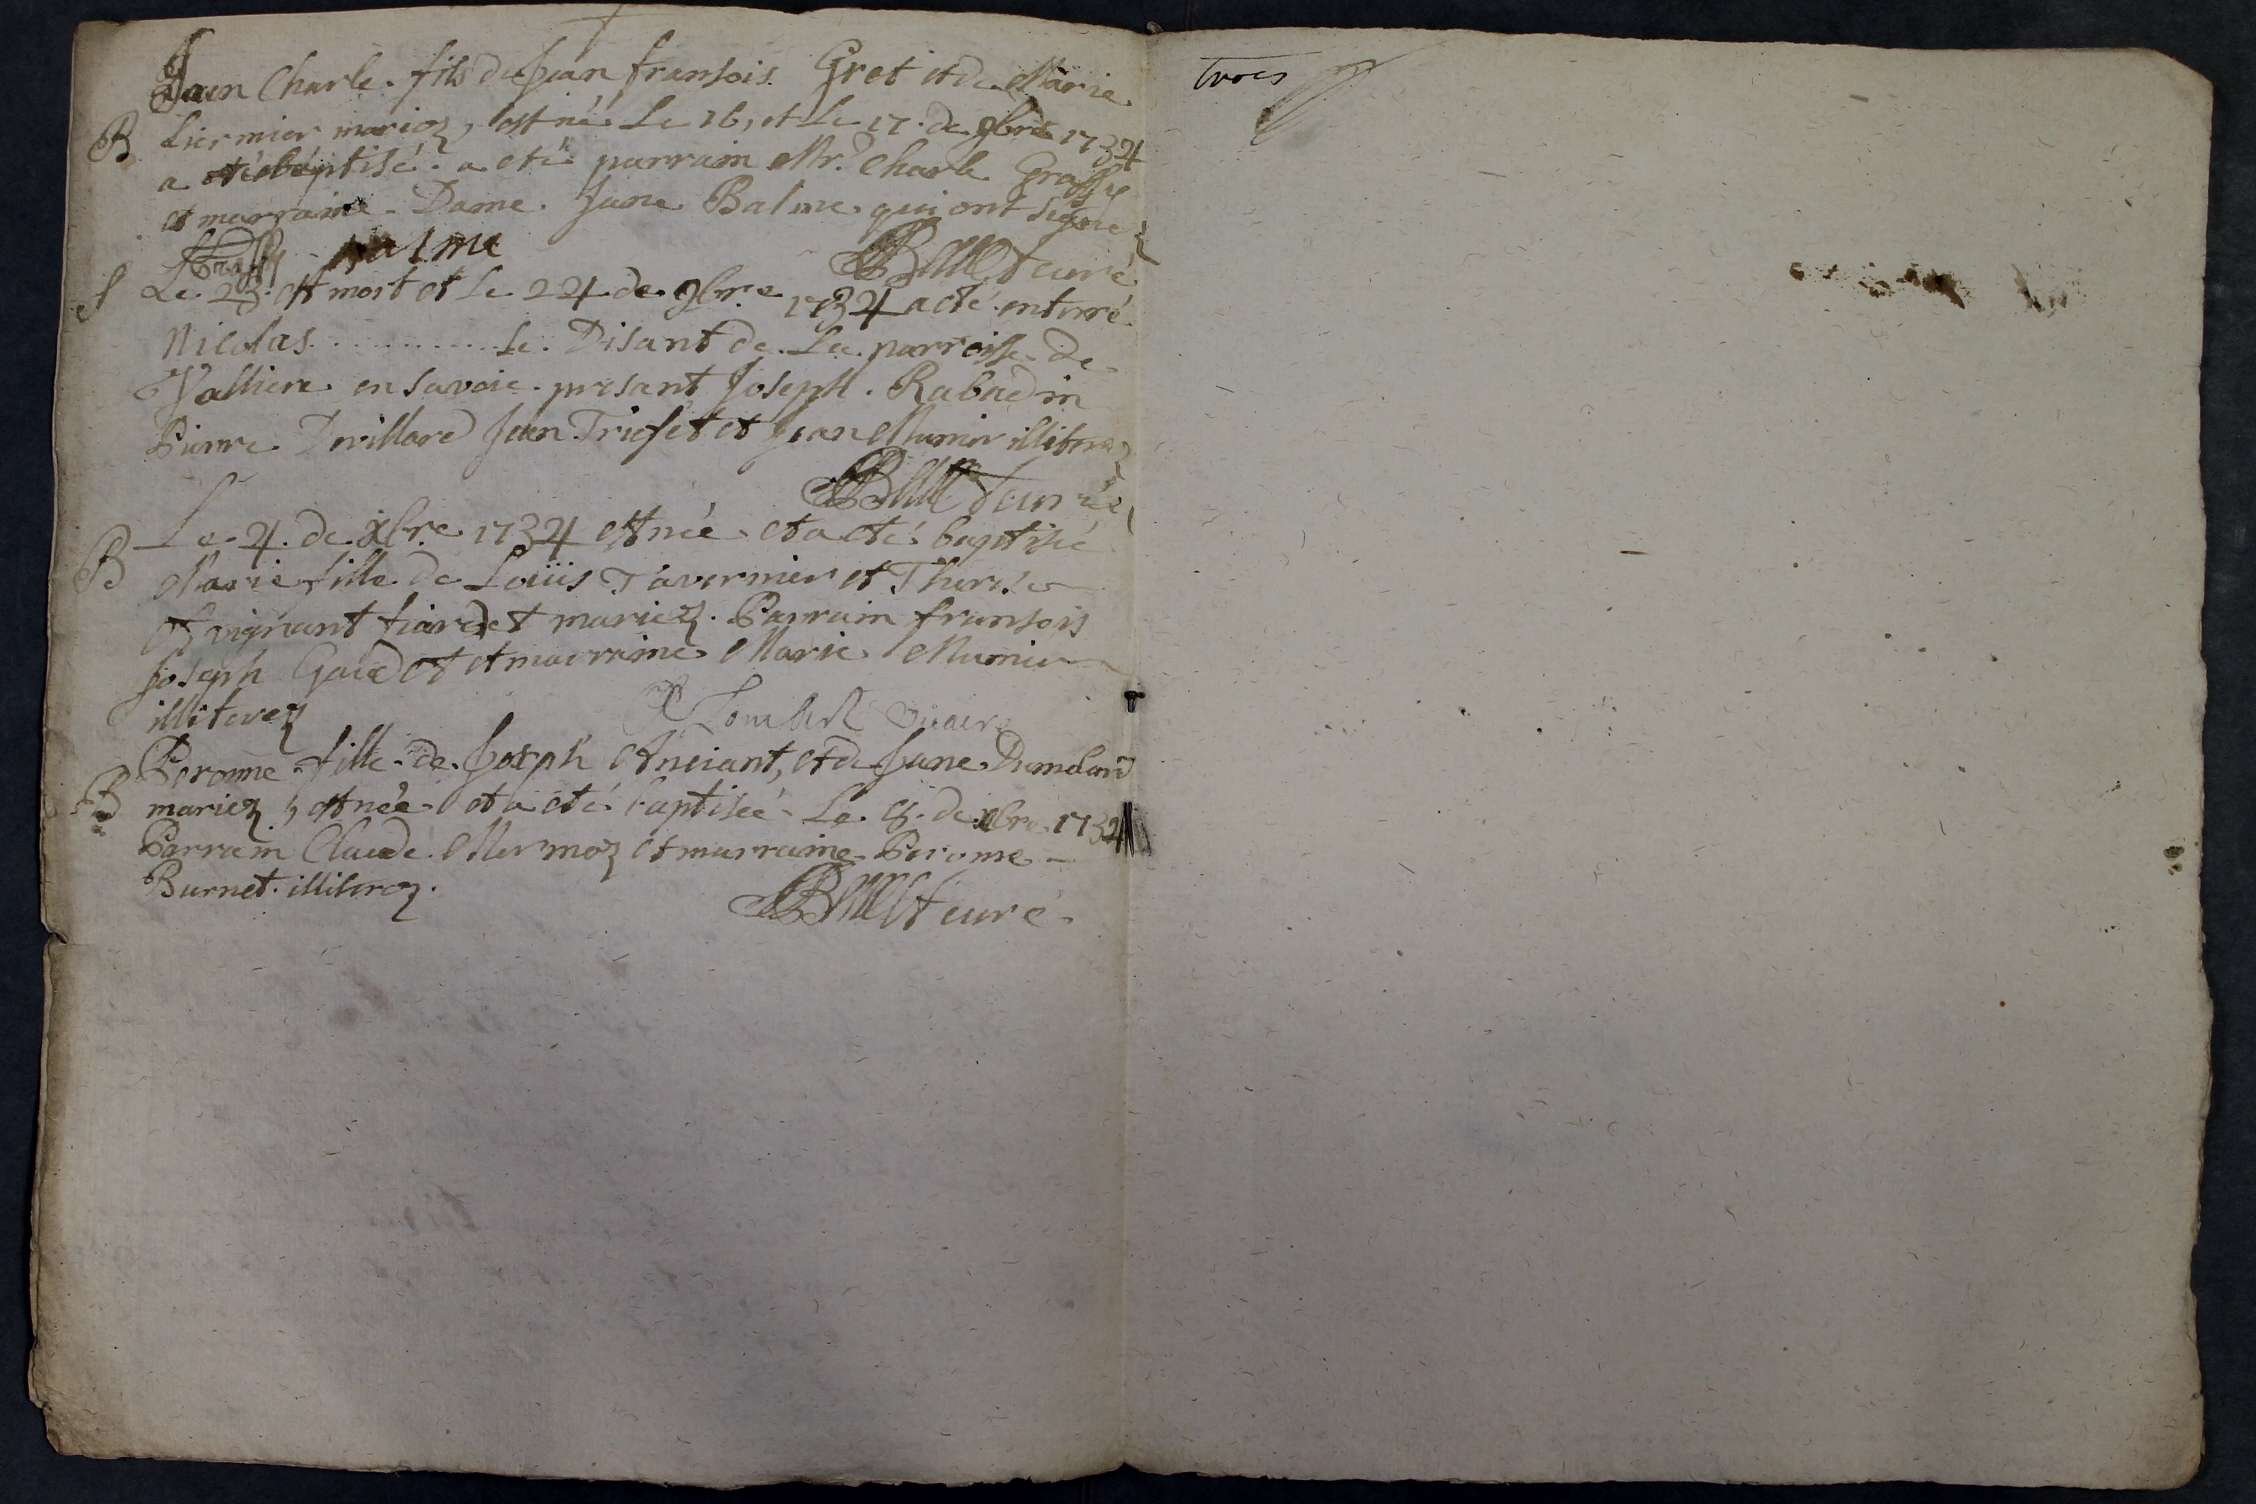 Jean Charle fils de Jean fransois Gret et de Marie
B Liermier mariez, est né Le 16, et Le 17. de 9bre 1734
a été baptisé. a eté parrain Mr. Charle Grassy
et marraine Dame. Jane Balme qui ont signé
Grassy balme Curé
S Le 23. est mort et le 24 de 9bre 1734 a eté enterré
Nicolas ............ se Disant de La parroisse de
Valliere en Savoie. presant Joseph. Rabadin
Pierre Devillard Jean Trieset et Jean Mumier illiterez
Curé
Le 4. de xbre 1734 est née et a eté baptisé
B Marie fille de Loüis Tavernier et Therese
fiardet mariez. Parrain fransois
Joseph et marraine Marie Mumier
illiterez
Vicaire
Peronne fille de Joseph Anciant, et de Jane Dumolard
B mariez, est née et a eté baptisée Le 8. de xbre 1734
Parrain Claude Mermoz et marraine Peronne
Burnet illiterez.
Curé
trois